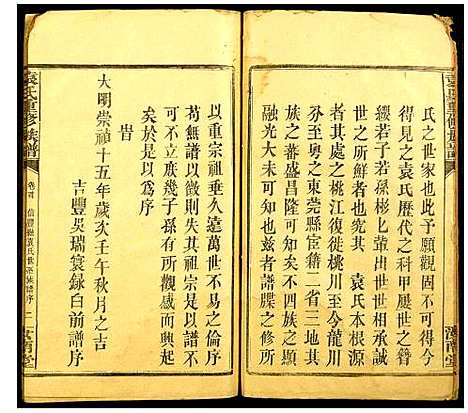 氏之世家也此予願觀固不可得今
得見之袁氏歷代之科甲屢世之簪
纓若子若孫彬匕輩出世世
之所鮮者也究其 袁氏本
者其處之桃江復徙桃川至今龍川
之興寧粵之東莞縣宦籍二省三地
族之蕃盛昌隆可知不四族之顯
融光大未可知也茲者譜牒之修所
以重宗祖垂久遠萬世不易之倫序
苟無譜以徵則失其祖宗是以譜不
可不立族幾子孫有所可興
矣於是以爲序
旹
大明崇禎十五年歲次壬午秋月之吉
吉豐吳瑞寰錄白前譜序
袁氏重修族譜
卷首
信豐
袁氏世系族譜序
二
汝南堂
袁氏重修族譜
汝南堂